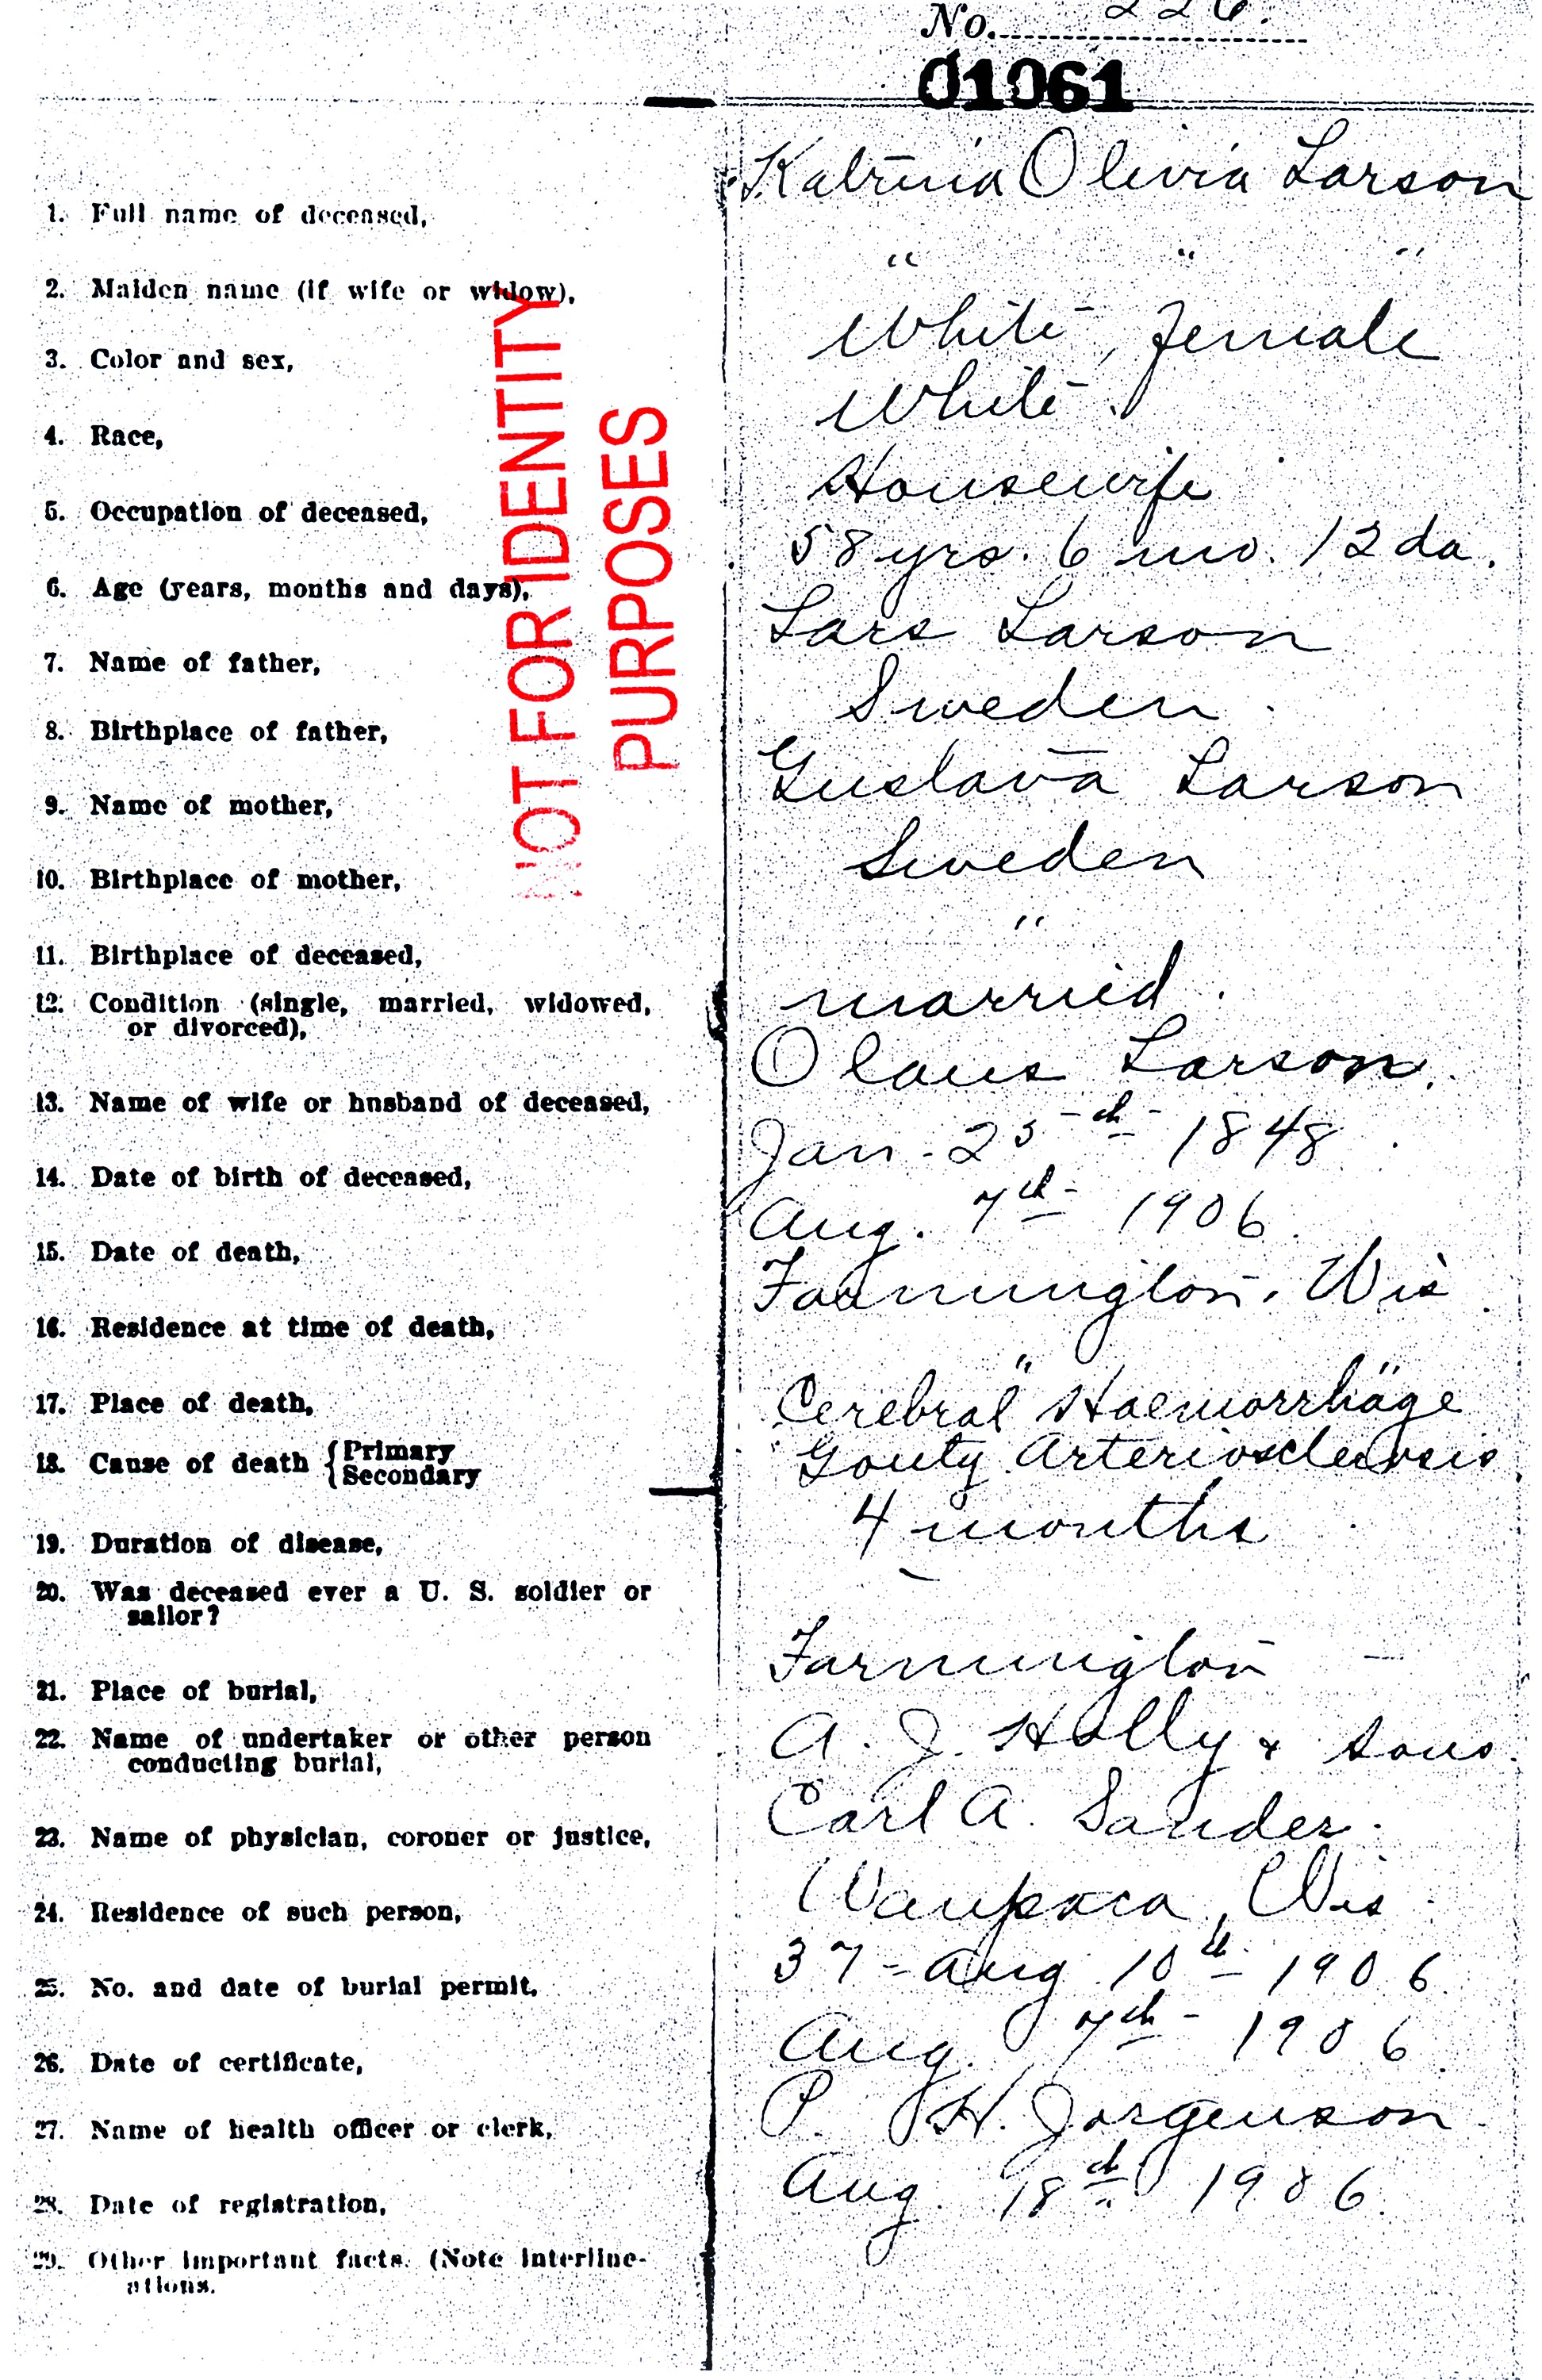 No. 226.
01061
1. Full name of deceased, Katrina Olivia Larson
2. Maiden name (if wife or widow), " " "
3. Color and sex, White, female
4. Race, White
5. Occupation of deceased, Housewife
6. Age (years, months and days), 58 yrs. 6 mo. 12 da.
7. Name of father, Lars Larson
8. Birthplace of father, Sweden
9. Name of mother, Gustava Larson
10. Birthplace of mother, Sweden
11. Birthplace of deceased, "
12. Condition (single, married, widowed,
or divorced), married.
13. Name of wife or husband of deceased, Olaus Larson.
14. Date of birth of deceased, Jan. 25th 1848
15. Date of death, Aug. 7th 1906
16. Residence at time of death, Farmington, Wis
17. Place of death, " "
18. Cause of death { Primary Cerebral Haemorrhage
Secondary Gouty Arteriosclerosis
19. Duration of disease, 4 months
20. Was deceased ever a U. S. soldier or
sailor? -
21. Place of burial, Farmington
22. Name of undertaker or other person
conducting burial, A. J. Holly & Sons.
23. Name of physician, coroner or justice, Carl A. Sander.
24. Residence of such person, Waupaca, Wis
25. No. and date of burial permit, 37 - Aug 10th 1906
26. Date of certificate, Aug. 7th 1906.
27. Name of health officer or clerk, P. H. Jorgenson
28. Date of registration, Aug. 18th 1906.
29. Other important facts. (Note interline-
ations.
NOT FOR IDENTITY
PURPOSES